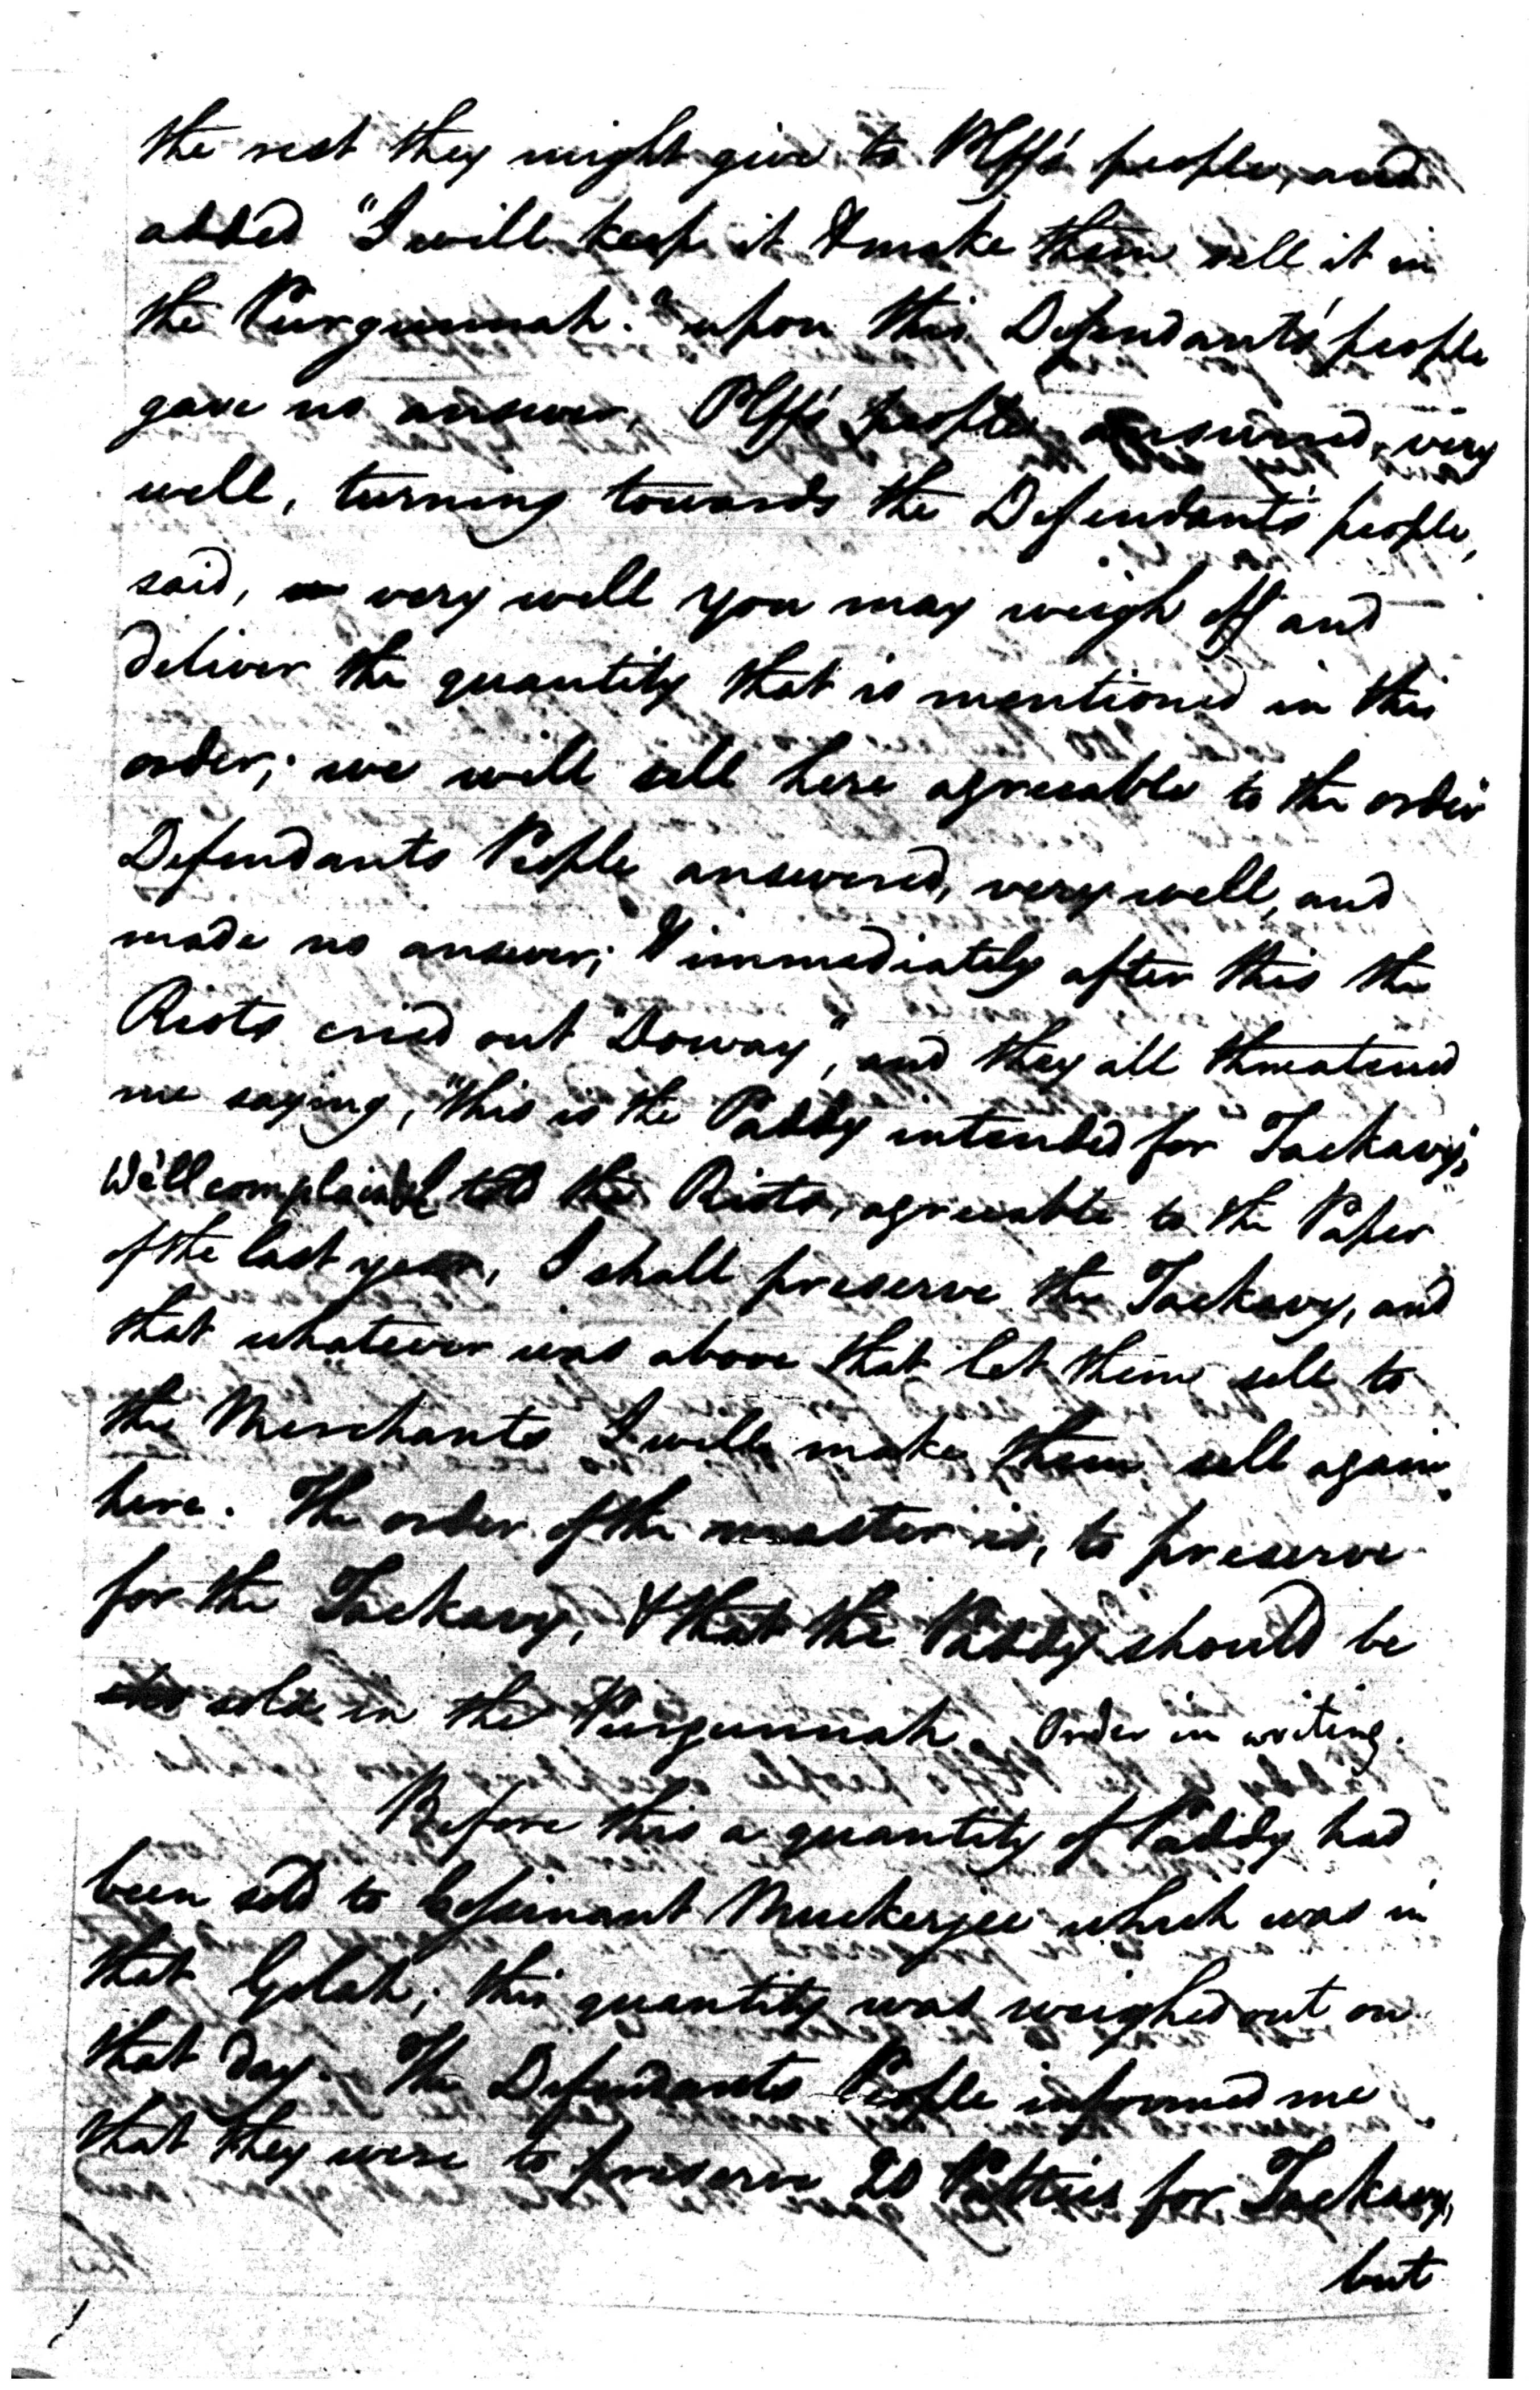 the rest they might give to Plff's people, and
added "I will keep it & make them sell it in
the Purgunnah." upon this Defendants' people
gave no answer, Plff's people answered, very
well, turning towards the Defendants' people,
said, very well you may weigh off and
deliver the quantity that is mentioned in this
order; we will sell here agreeable to the order
Defendants People answered, very well, and
made no answer; & immediately after this the
Riots cried out "Doway", and they all threatened
me saying, "this is the Paddy intended for Tackavy,
We'll complain I told the Riots, agreeable to the Paper
of the last year, I shall preserve the Tackavy, and
that whatever was above that let them sell to
the Merchants I will make them sell again
here. The order of the master is, to preserve
for the Tackavy, & that the Paddy should be
sold in the Purgunnah. Order in writing.
Before this a quantity of Paddy had
been sold to Muckerjee which was in
that Golah; this quantity was weighed out on
that day. The Defendants People informed me
that they were to preserve 20 for Tackavy,
but